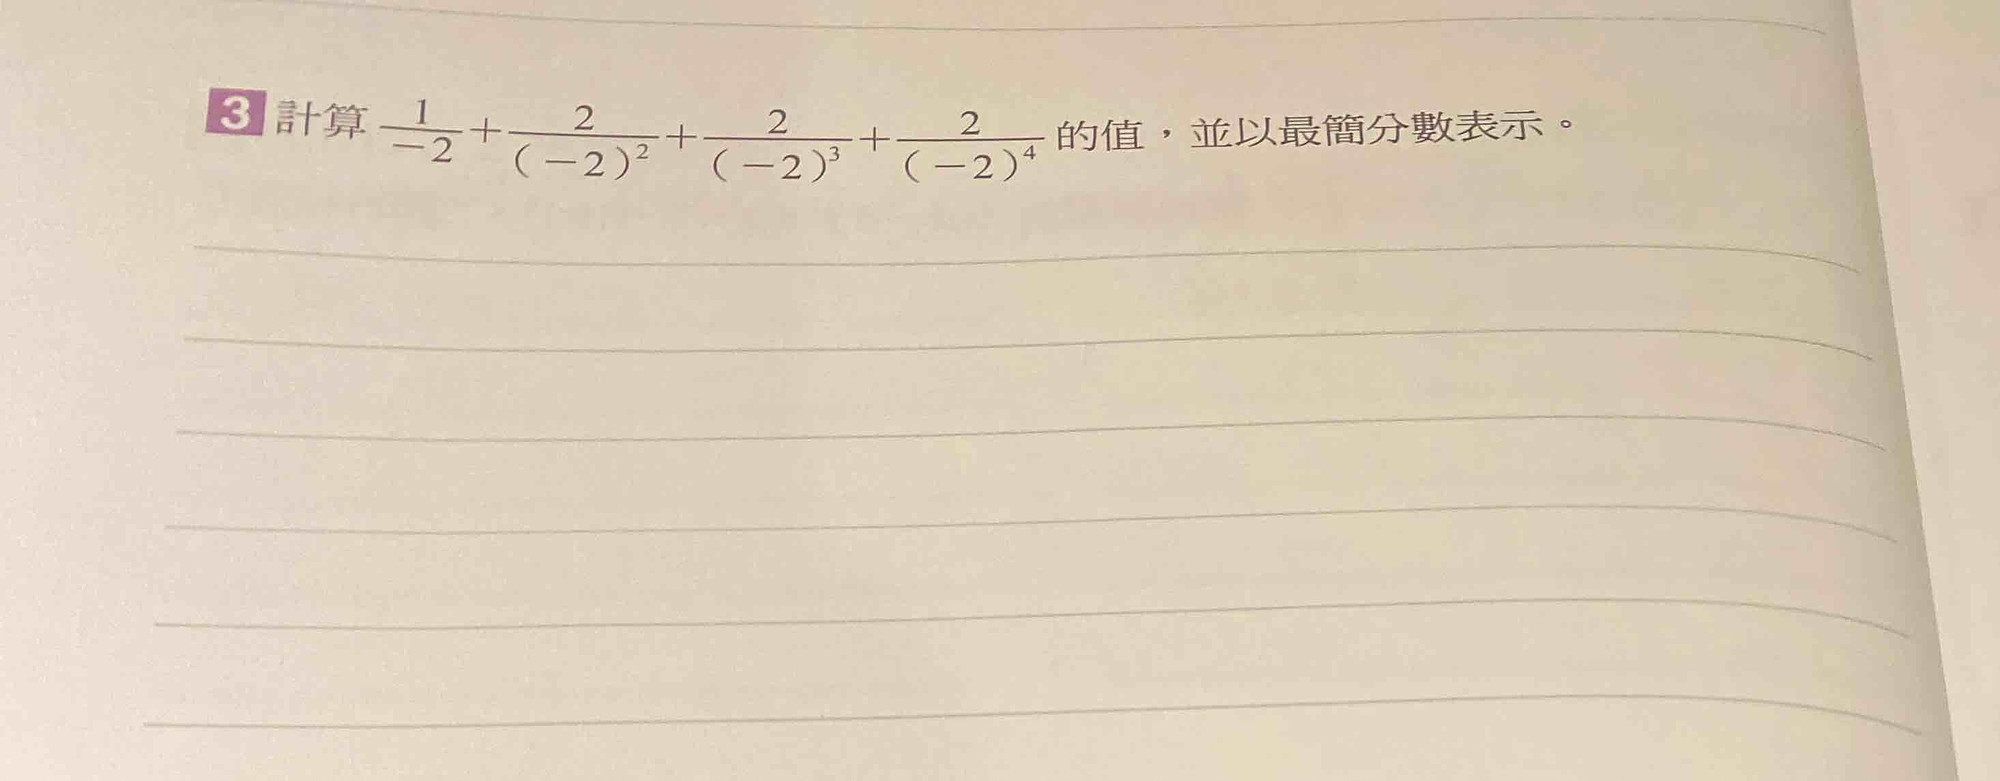 3 計算 \frac{1}{-2}+\frac{2}{(-2)^2}+\frac{2}{(-2)^3}+\frac{2}{(-2)^4} 的值，並以最簡分數表示。